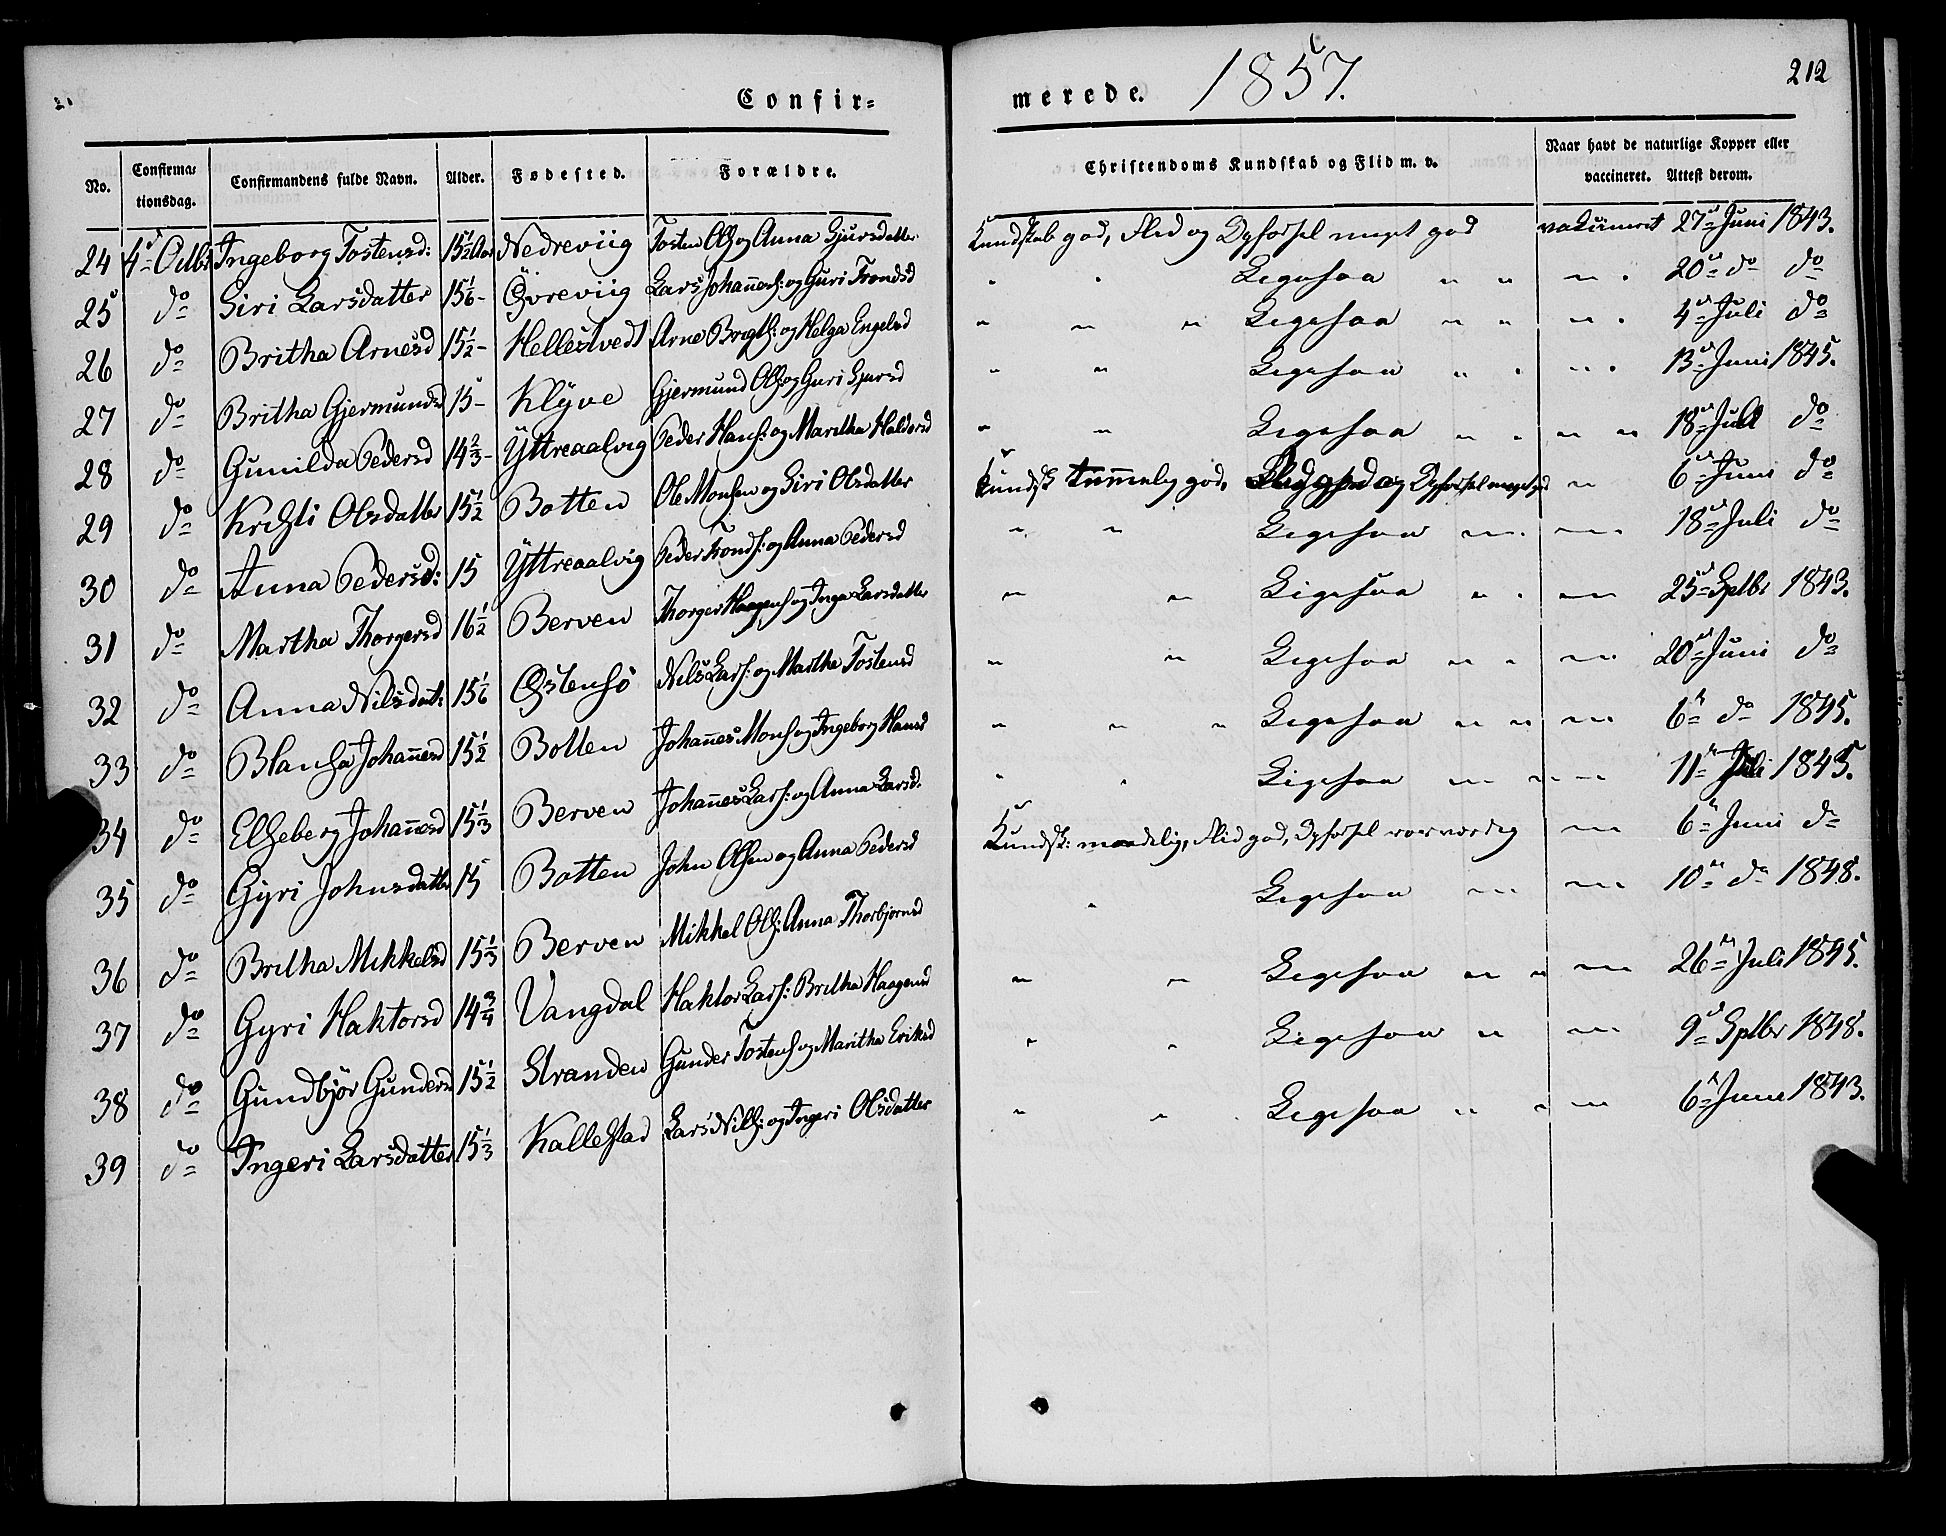 Confir-
merede. 1857. 212
No. Confirmationsdag. Confirmandens fulde Navn. Alder. Fødested. Forældre. Christendoms Kundskab og Flid m. v. Naar havt de naturlige Kopper eller vaccineret. Attest derom.
24 4de Octbr Ingeborg Tostensd: 15½ Aar Nedreviig Tosten Ols og Anna Gjursdatter Kundskab god, Flid og Opførsel meget god vakcineret 27de Juni 1843.
25 do Siri Larsdatter 15 1/6 - Övreviig Lars Johanness: og Guri Trondsd " " Ligesaa " " " " 20de do do
26 do Britha Arnesd 15½ - Hellestvedt Arne og Helga Engelsd " " " Ligesaa " " " " 4de Juli do
27 do Britha Gjermundsd 15 - Klyve Gjermund Ols: og Guri Gjursd " " Ligesaa " " " " 13de Juni 1845.
28 do Gunilda Pedersd 14 2/3 - Yttreaalvig Peder Hans: og Maritha Haldorsd " " Ligesaa " " " " 18de Juli do
29 do Kristi Olsdatter 15½ Botten Ole Monsen og Siri Olsdatter Kundsk temmelig god, og Opførsel meget god " 6te Juni do
30 do Anna Pedersd: 15 Yttreaalvig Peder Tronds: og Anna Pedersd " " Ligesaa " " " " 18de Juli do
31 do Martha Thorgersd 16½ Berven Thorger Haagens og Inga Larsdatter " " Ligesaa " " " " 25de Sptbr 1843.
32 do Anna Nilsdatt: 15 1/6 Østensø Nils Lars: og Martha Tostensd " " Ligesaa " " " " 20de Juni do
33 do Blansa Johannesd 15½ Botten Johannes Mons og Ingeborg Hansd " " " Ligesaa " " " " 6te do 1845.
34 do Elseberg Johannesd 15 1/3 Berven Johannes Lars: og Anna Larsd. " " Ligesaa " " " " 11te Juli 1843.
35 do Gyri Johnsdatter 15 Botten John Olsen og Anna Pedersd Kundsk: maadelig, Flid god, Opførsel " " 6te Juni do
36 do Britha Mikkelsd 15 1/3 Berven Mikkel Ols: Anna Thorbjørnsd " Ligesaa " " " " 10de do 1848.
37 do Gyri Haktorsd 14¾ Vangdal Haktor Lars: Britha Haagensd " " Ligesaa " " " " 26de Juli 1845.
38 do Gundbjör Gundersd 15½ Stranden Gunder Tostens og Maritha Eriksd " " Ligesaa " " " 9de Sptbr 1848.
39 do Ingeri Larsdatter 15 1/3 Kallestad Lars Nils: og Ingeri Olsdatter " " " Ligesaa " " " " 6te Juni 1843.